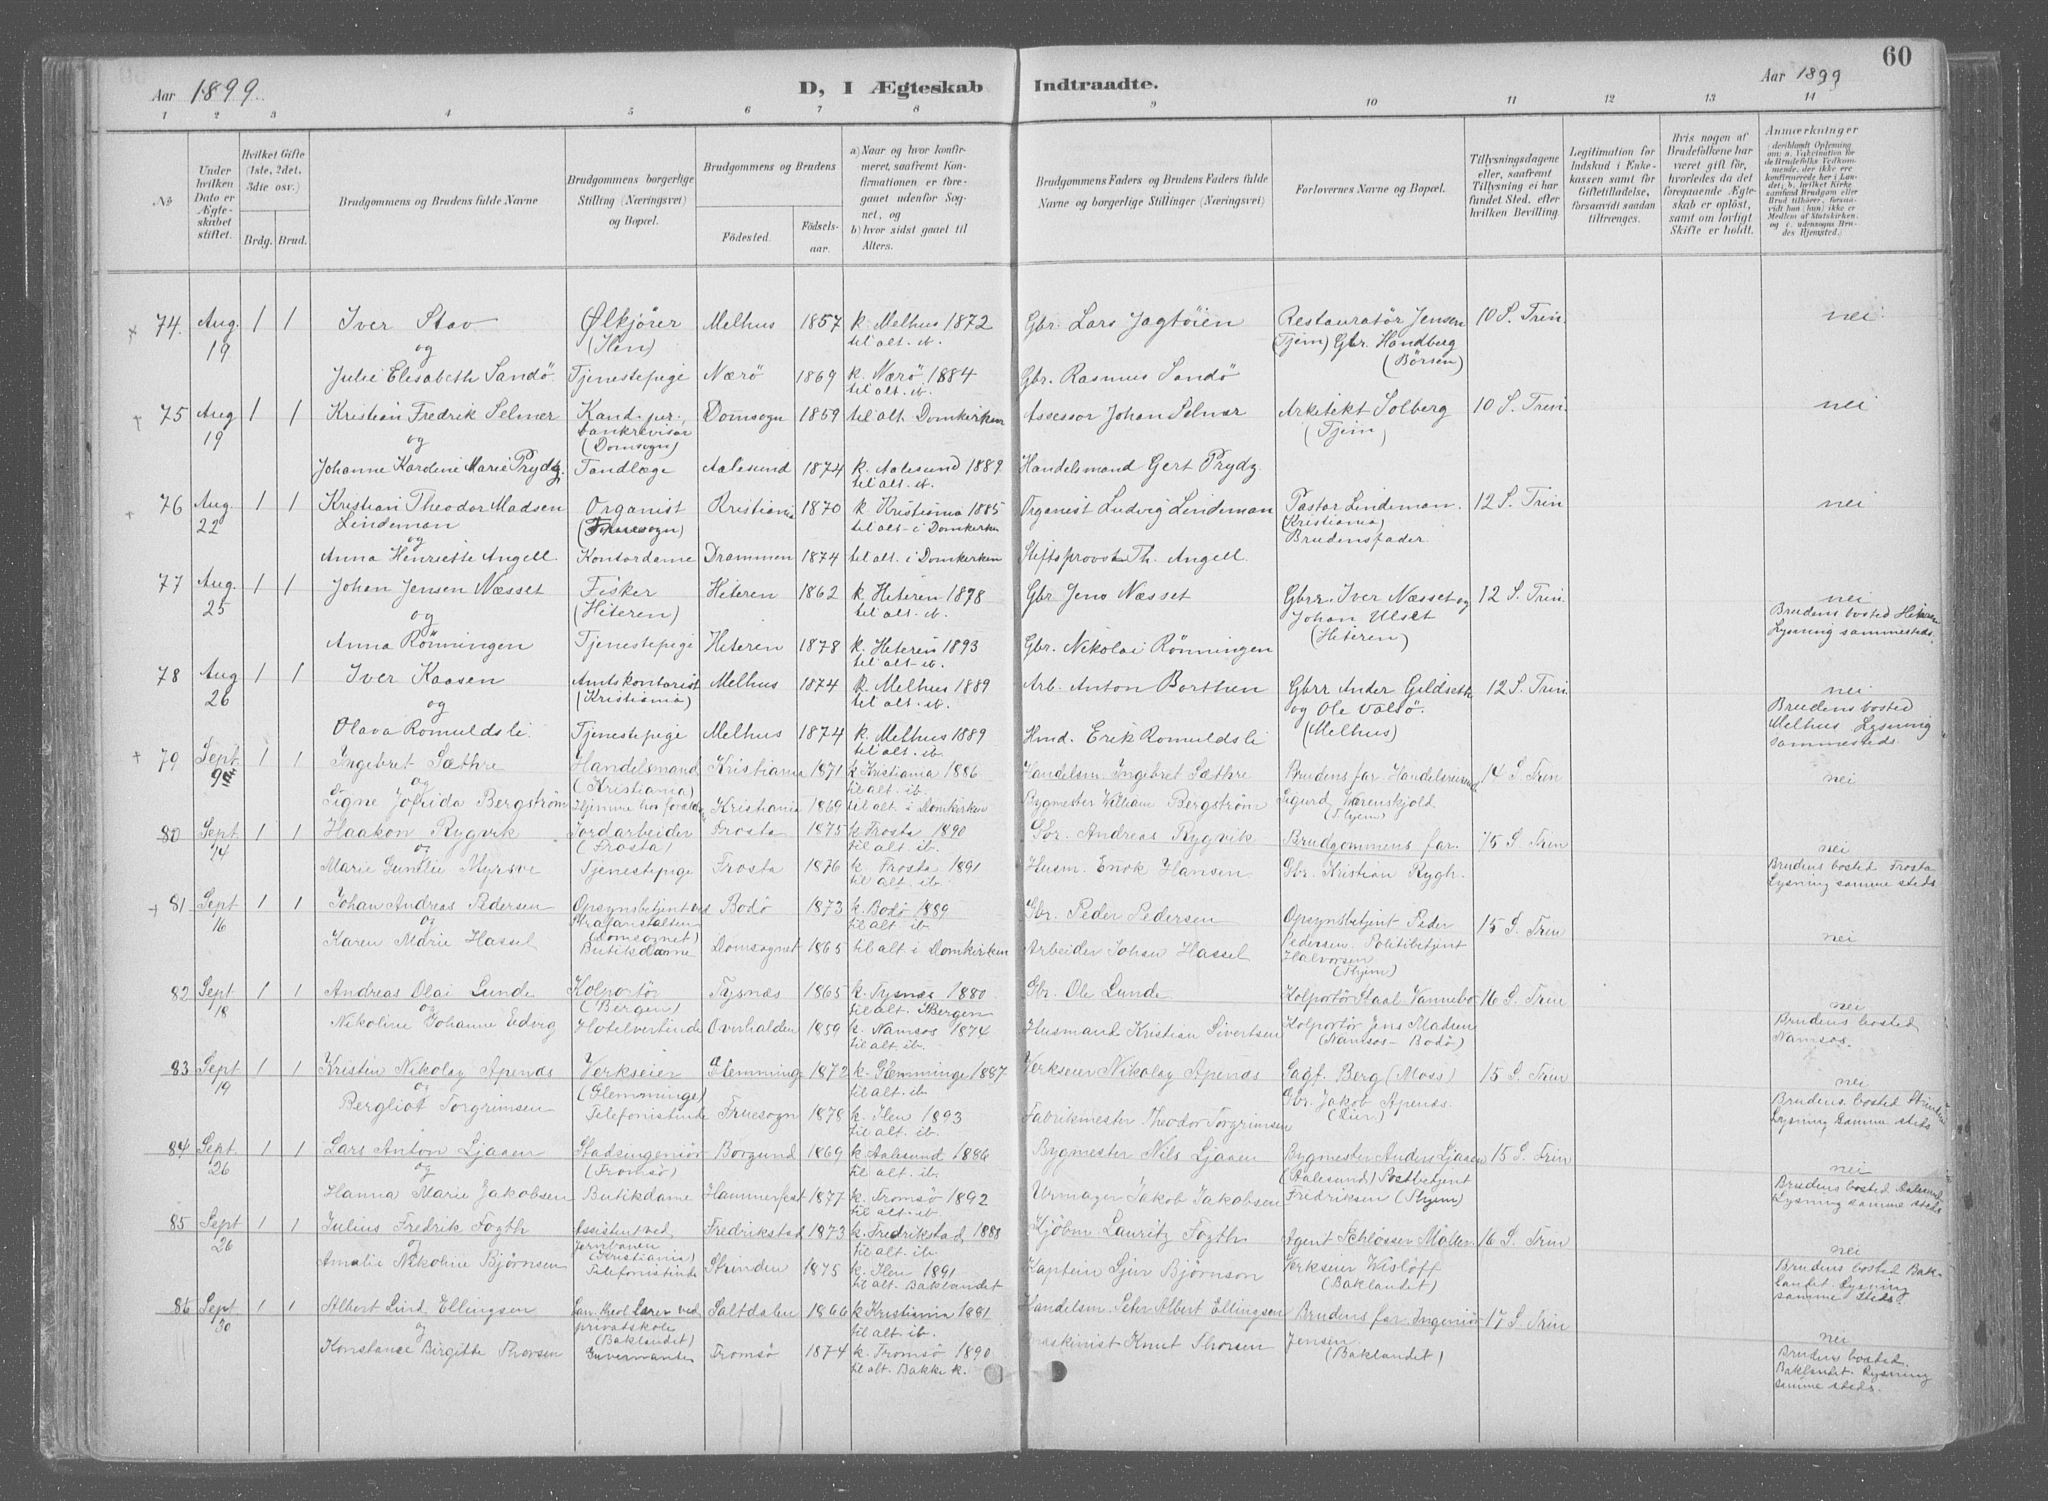 60
Aar 1899. D, I Ægteskab Indtraadte. Aar 1899
1 2 3 4 5 6 7 8 9 10 11 12 13 14
No
Under hvilken Dato er Ægteskabet stiftet.
Hvilket Gifte (1ste, 2det, 3die osv.)
Brdg. Brud.
Brudgommens og Brudens fulde Navne
Brudgommens borgerlige Stilling (Næringsvei) og Bopæl.
Brudgommens og Brudens
Fødested. Fødselsaar.
a) Naar og hvor konfirmeret, saafremt Konfirmationen er foregaaet udenfor Sognet, og
b) hvor sidst gaaet til Alters.
Brudgommens Faders og Brudens Faders fulde Navne og borgerlige Stillinger (Næringsvei)
Forlovernes Navne og Bopæl.
Tillysningsdagene eller, saafremt Tillysning ei har fundet Sted, efter hvilken Bevilling.
Legitimation for Indskud i Enkekassen samt for Giftetilladelse, forsaavidt saadan tiltrænges.
Hvis nogen af Brudefolkene har været gift før, hvorledes da det foregaaende Ægteskab er opløst, samt om lovligt Skifte er holdt.
Anmærkninger (deriblandt Oplysning om: a. Vaccination for de Brudefolks Vedkommende, der ikke ere konfirmerede her i Landet; b. hvilket Kirkesamfund Brudgom eller Brud tilhører, forsaavidt han (hun) ikke er Medlem af Statskirken, og c. udensogns Brudes Hjemsted.)
74. Aug. 19 1 1 Iver Stav Ølkjører (Ilen) Melhus 1857 k. Melhus 1872 til alt. ib. Gbr. Lars Jagtøien Restauratør Jensen (Tjem) Gbr. Handberg (Børsen) 10 S. Trin. nei
og
Julie Elisabeth Sandø Tjenestepige Nærø 1869 k. Nærø 1884 til alt. ib. Gbr. Rasmus Sandø
75 Aug 19 1 1 Kristian Fredrik Selmer Kand. jur. bankrevisor (Domsogn) Domsogn 1859 til alt. Domkirken Assessor Johan Selmer Arkitekt Solberg (Tjem) 10 S. Trin. nei
og
Johanne Kardine Marie Prydz. Tandlæge Aalesund 1874 k. Aalesund 1889 til alt. ib. Handelsmand Gert Prydz.
76 Aug. 22 1 1 Kristian Theodor Madsen Lindeman Organist (Fruesogn) Kristiania 1870 k Kristiania 1885 til alt. i Domkirken Organist Ludvig Lindeman Pastor Lindeman. (Kristiania) Brudensfader. 12 S. Trin nei
og
Anna Henriette Angell Kontordame Drammen 1874 til alt. i Domkirken Stiftsprovst Th. Angell.
77 Aug. 25 1 1 Johan Jensen Næsset Fisker (Hiteren) Hiteren 1862 k. Hiteren 1878 til alt. ib. Gbr. Jens Næsset Gbrr. Iver Næsset og Johan Ulset (Hiteren) 12 S. Trin. nei
og Brudens bosted Hiteren
Anna Rønningen Tjenestepige Hiteren 1878 k. Hiteren 1893 til alt. ib. Gbr. Nikolai Rønningen Lysning sammesteds.
78 Aug 26 1 1 Iver Kaasen Amtskontorist (Kristiania) Melhus 1874 k. Melhus 1889 til alt. ib. Arb. Anton Borthen Gbrr Ander Gildseth og Ole Valsø. (Melhus) 12 S. Trin. nei
og Brudens bosted
Olava Romuldsli Tjenestepige Melhus 1874 k. Melhus 1889 til alt. ib. Hmd. Erik Romuldsli Melhus Lysning sammesteds.
79 Sept. 9 1 1 Ingebret Sæthre Handelsmand (Kristiania) Kristiania 1871 k Kristiania 1886 til alt. ib. Handelsm. Ingebret Sæthre Brudens far Handelsreisende Sigurd Warenskjold (Thjem) 14 S. Trin nei
og
Signe Jofrida Bergstrøm Hjemme hos foreldre Kristiania 1869 til alt. i Domkirken Bygmester William Bergstrøm
80 Sept 14 1 1 Haakon Rygvik Jordarbeider (Frosta) Frosta 1875 k Frosta 1890 til alt. ib. Gbr. Andreas Rygvik Brudgommens far. 15 S Trin nei
og Brudens bosted Frosta
Marie Gunelie Myrsve Tjenestepige Frosta 1876 k. Frosta 1891 til alt. ib. Husm. Enok Hansen Gbr. Kristian Rygh. Lysning samme steds
81 Sept 16 1 1 Johan Andreas Pedersen Opsynsbetjent ved Strafanstalten (Domsognet) Bodø 1873 k. Bodø 1889 til alt ib. Gbr. Peder Pedersen Opsynsbetjent Peder Pedersen. Politibetjent Halvorsen (Thjem) 15 S. Trin nei
og
Karen Marie Hassel Butiksdame Domsognet 1865 til alt i Domkirken Arbeider Johan Hassel
82 Sept 18 1 1 Andreas Olai Lunde Kolportør (Bergen) Tysnæs 1865 k. Tysnæs 1880 til alt. i Bergen Gbr. Ole Lunde Kolportør Staal Vannebo 16 S. Trin nei
og Brudens bosted
Nikoline Johanne Edvig Hotelvertinde Overhalden 1859 k. Namsos 1874 til alt. ib. Husmand Kristian Sivertsen Kolportør Jens Madsen (Namsos - Bodø) Namsos.
83 Sept 19 1 1 Kristen Nikolay Apenes Verkseier (Glemminge) Glemminge 1872 k. Glemminge 1887 til alt. ib. Verkseier Nikolay Apenes Sagf. Berg (Moss) Gbr. Jakob Apenes. (Lier) 15 S. Trin nei
og Brudens bosted Strinden
Bergliot Torgrimsen Telefonistinde Fruesogn 1878 k. Ilen 1893 til alt. ib. Fabrikmester Theodor Torgrimsen Lysning samme steds
84 Sept. 26 1 1 Lars Anton Ljaaen Stadsingeniør (Tromsø) Borgund 1869 k. Aalesund 1886 til alt. ib. Bygmester Nils Ljaaen Bygmester Anders Ljaaen (Aalesund) Postbetjent Fredriksen (Thjem) 15 S. Trin nei
og Brudens bosted Aalesund
Hanna Marie Jakobsen Butikdame Hammerfest 1877 k. Tromsø 1892 til alt. ib. Urmager Jakob Jakobsen Lysning samme steds
85 Sept 26 1 1 Julius Fredrik Fogth Assistent ved Jernbanen (Kristiania) Fredrikstad 1873 k. Fredrikstad 1888 til alt. ib. Kjøbm Lauritz Fogth Agent Schlösser Møller 16 S. Trin nei
og Brudens bosted Baklandet. Lysning samme steds.
Amalie Nikoline Bjørnsen Telefonistinde Strinden 1875 k. Ilen 1891 til alt. Baklandet Kaptein Sjur Bjørnson Verkseier Wisløff (Baklandet)
86 Sept 30 1 1 Albert Lind Ellingsen ved privatskole (Baklandet) Saltdalen 1866 k. Kristiania 1881 til alt. ib. Handelsm. Peter Albert Ellingsen Brudens far. Ingeniør Jensen (Baklandet) 17 S. Trin nei
og Brudens bosted.
Konstance Birgitte Thorsen Guvernante Tromsø 1874 k. Tromsø 1890 til alt. Bakke k. Maskinist Knut Thorsen Baklandet. Lysning samme steds.